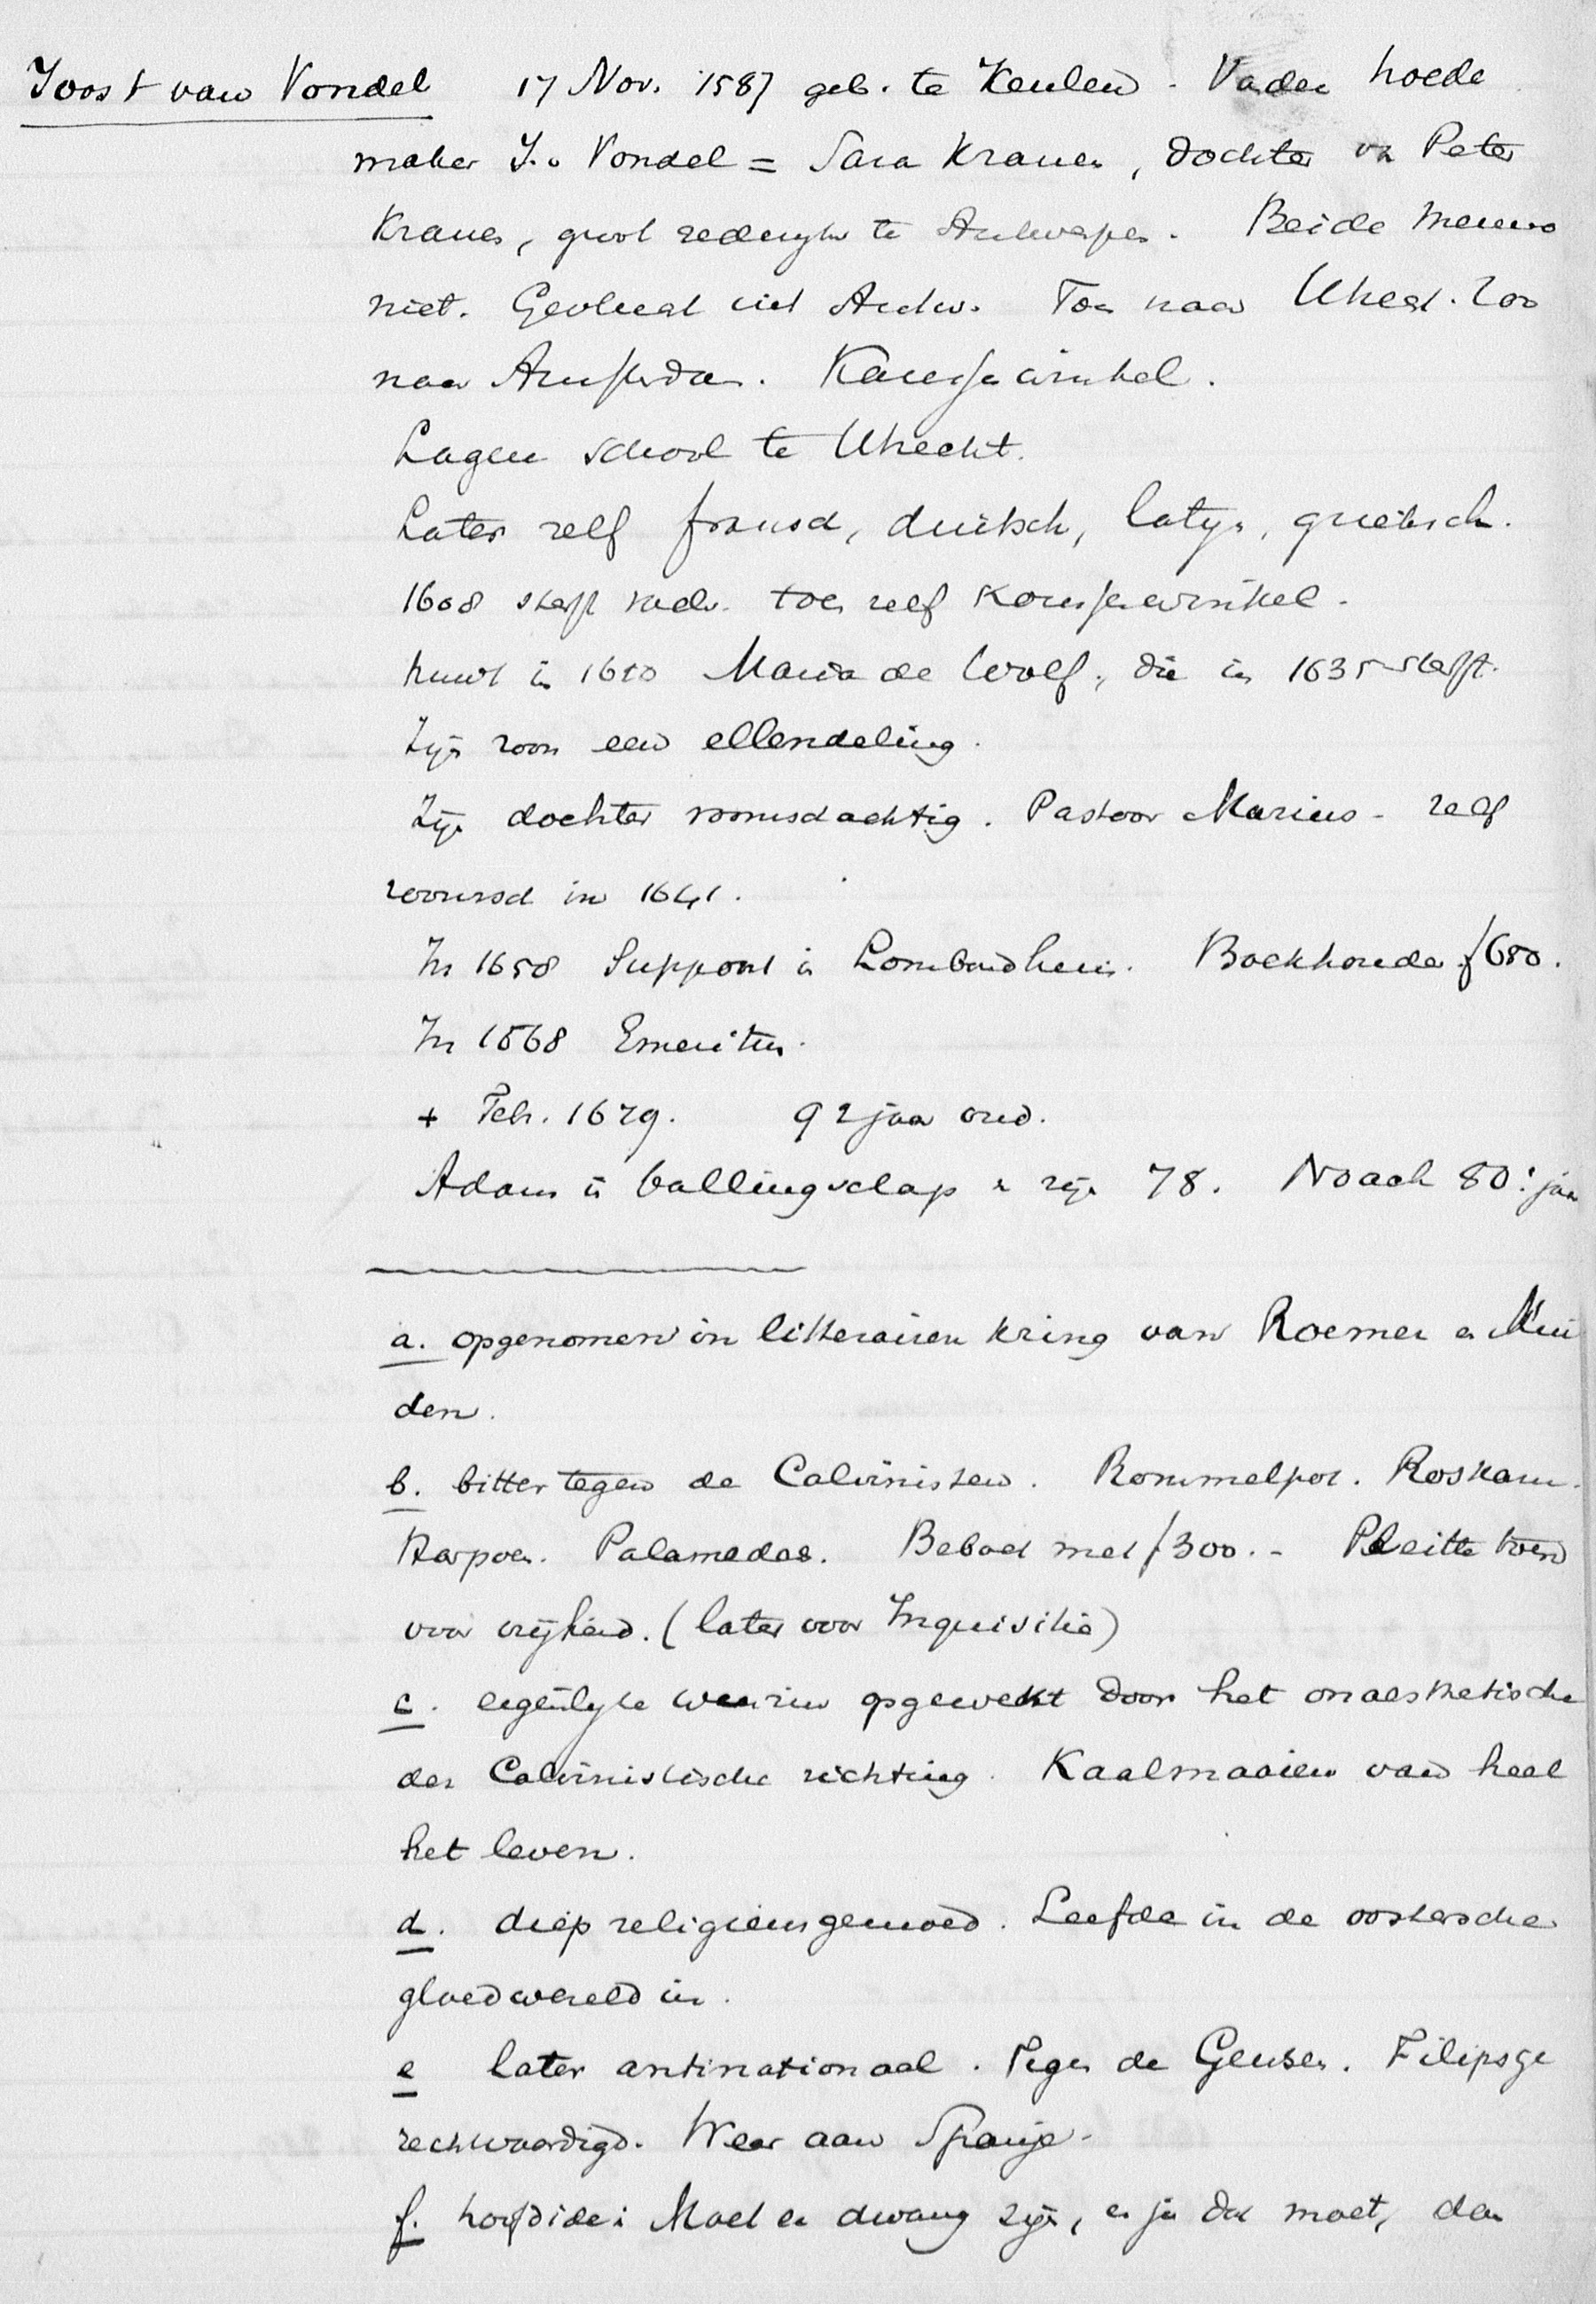 Joost van Vondel 17 Nov. 1587 geb. te Keulen. Vader hoede
maker J. v Vondel = Sara Kranen, dochter vn Peter
Kranen, groot rederyker te Antwerpen. Beide Menno
niet. Gevlucht uit Antw. Toen naar Utrecht. Zoo
naar Amsterdam. Kousenwinkel.
Lagere school te Utrecht.
Later zelf fransch, duitsch, latyn, grieksch.
1608 sterft vader. toen zelf Kousenwinkel.
huwt in 1610 Maria de Wolf, die in 1635 sterft.
Zijn zoon een ellendeling.
Zijn dochter roomschachtig. Pastoor Marius - zelf
roomsch in 1641.
In 1658 Suppoost in Lombardhuis. Boekhouder f 650.
In 1668 Emeritus.
+ Feb. 1679. 92 jaar oud.
Adam in ballingschap in zijn 78. Noach 80: jaar
a. opgenomen in litterairen kring van Roemer en Mui
den.
b. bitter tegen de Calvinisten. Rommelpot. Roskam.
Harpoen. Palamedes. Beboet met f 300.- Pleitte toen
voor vrijheid. (later voor Inquisitie)
c. eigenlyke weerzin opgewekt door het onaesthetische
der Calvinistische richting. Kaalmaaien van heel
het leven.
d. diep religieus gemoed. Leefde in de oostersche
gloedwereld in.
e later antinationaal. Tegen de Geusen. Filips ge
rechtvaardigd. Weer aan Spanje.
f. hoofdidee: Moet er dwang zijn, en ja dat moet, dan